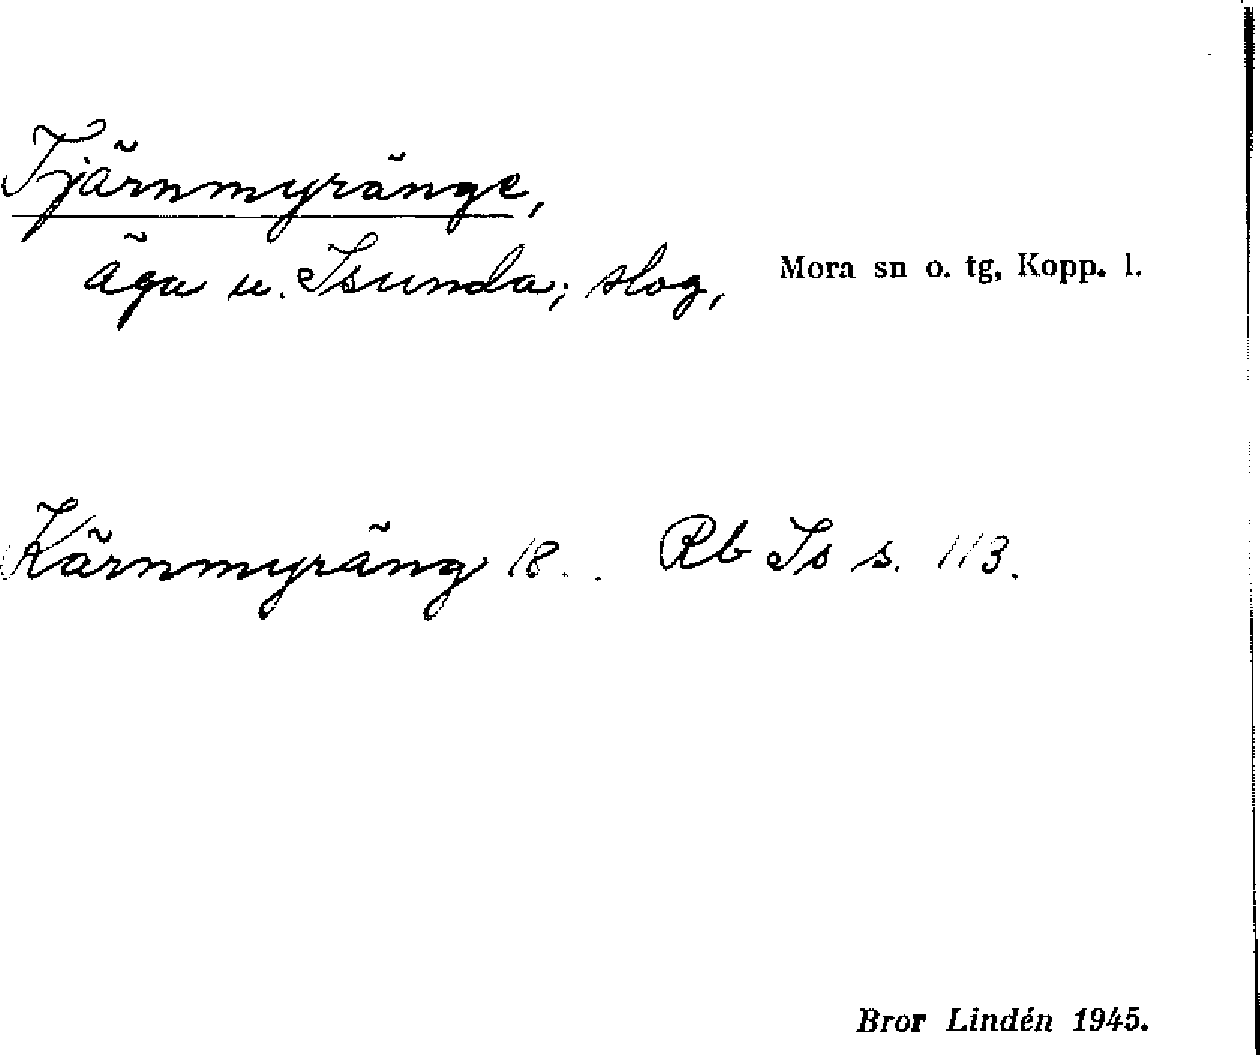 Tjärnmyränge,
äga u. Isunda; slog,
Mora sn o. tg, Kopp. l.
Kärnmyräng 18. . Rb Is s. 113.
Bror Lindén 1945.